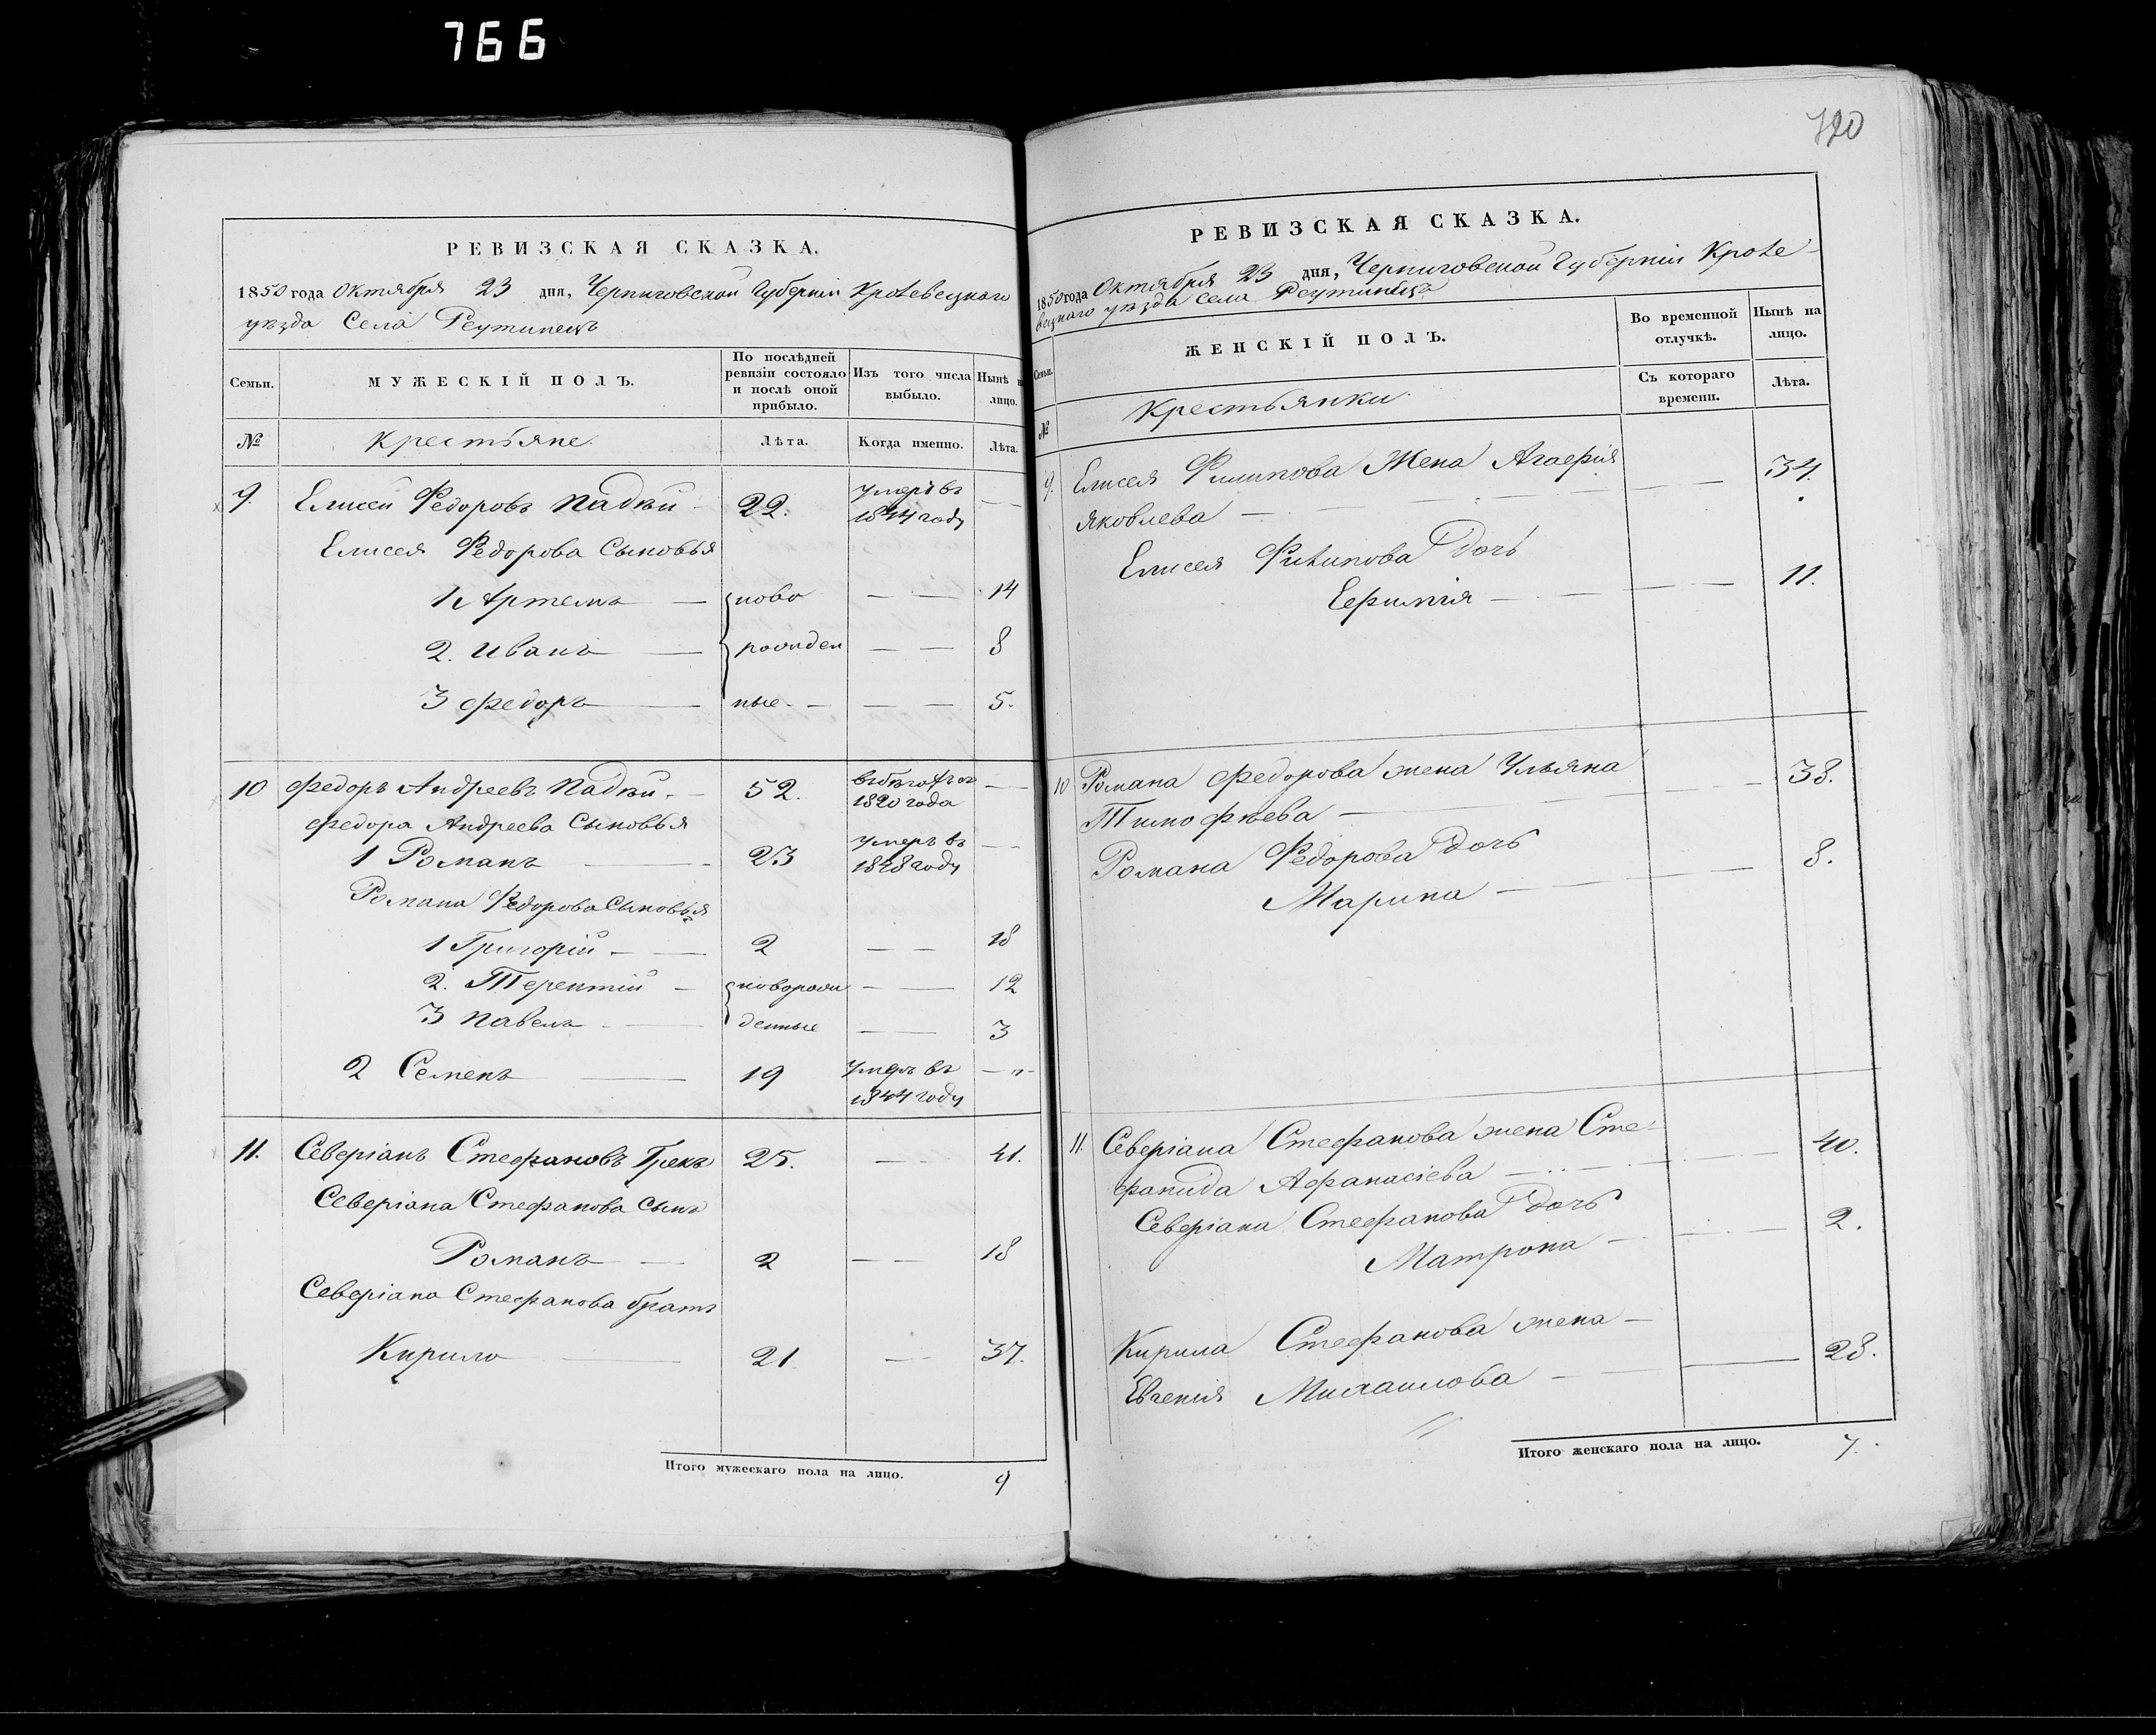 766
РЕВИЗСКАЯ СКАЗКА.
1850 года Октября 23 дня, Черниговской Губерніи Кролевецкаго
уѣзда Села Реутинецъ
Семьи.
МУЖЕСКІЙ ПОЛЪ.
По послѣдней
ревизіи состояло
и послѣ оной
прибыло.
Изъ того числа
выбыло.
Нынѣ н
лицо.
№
Крестьяне.
Лѣта.
Когда именно.
Лѣта.
9. Елисей Федоровъ Падѣй 22. умеръ въ
1844 году
Елисея Федорова Сыновья
1 Артемъ ново 14
2. Иванъ рожден 8
3 Федоръ ные 5.
10 Федоръ Андреевъ Падѣй 52.
1820 года
Федора Андреева Сыновья
1 Романъ 23 умеръ въ
1848 году
Романа Федорова Сыновья
1 Григорій 2 18
2. Терентій новорож 12
3 Павелъ денные 3
2 Семенъ 19 умеръ въ
1844 году
11. Северіанъ Стефановъ Грекъ 25. 41.
Северіана Стефанова сынъ
Романъ 2 18
Северіана Стефанова братъ
Кирило 21 37.
Итого мужескаго пола на лицо. 9
720
РЕВИЗСКАЯ СКАЗКА.
1850 года Октября 23 дня, Черниговской Губерніи Кроле-
вецкаго уѣзда села Реутинецъ
Семьи.
ЖЕНСКІЙ ПОЛЪ.
Во временной
отлучкѣ.
Нынѣ на
лицо.
Съ котораго
времени.
Лѣта.
№
Крестьянки
9. Елисея Филипова Жена Агафія 34.
Яковлева
Елисея Филипова дочь
Ефимія 11.
10 Романа Федорова жена Ульяна 38.
Тимофѣева
Романа Федорова дочь
Марина 8.
11. Северіана Стефанова жена Сте- 40.
фанида Афанасіева
Северіана Стефанова дочь
Матрона 2.
Кирила Стефанова жена
Евгенія Михаилова 28.
Итого женскаго пола на лицо. 7.